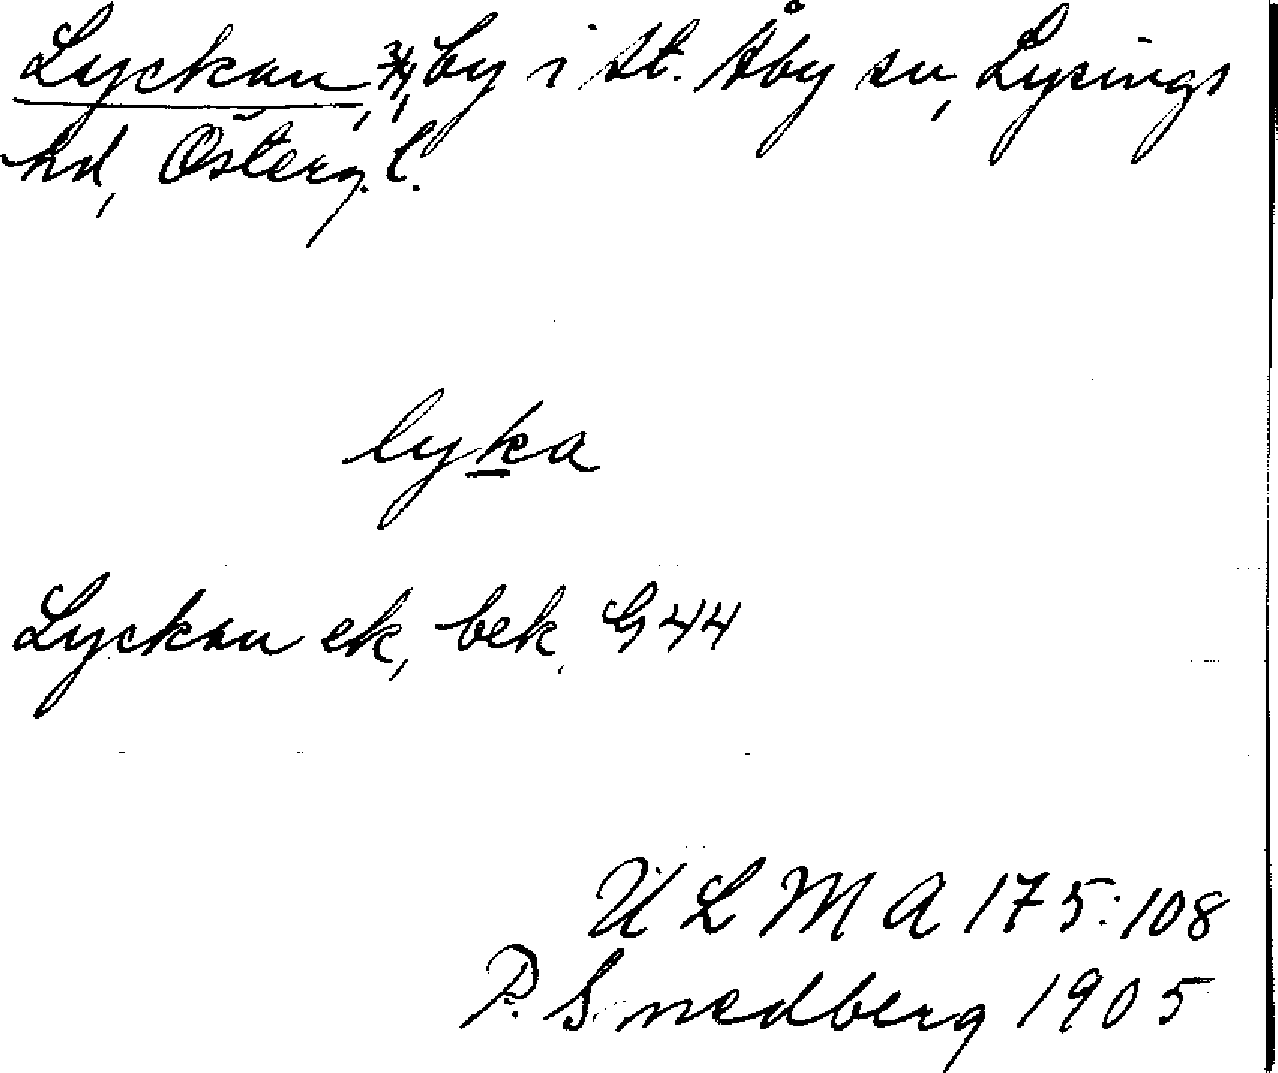 Lyckan, 3/4, by i St. Åby sn, Lysings
hd, Österg. l.
lyka
Lyckan ek, bek. G44
ULMA 175:108
P. Smedberg 1905